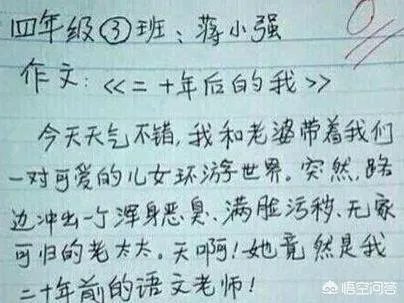 四年级③班：蒋小强
作文：<<二十年后的我>>
今天天气不错，我和老婆带着我们
一对可爱的儿女环游世界。突然，路
边冲出一个浑身恶臭、满脸污秽、无家
可归的老太太。天啊！她竟然是我
二十年前的语文老师！
悟空问答